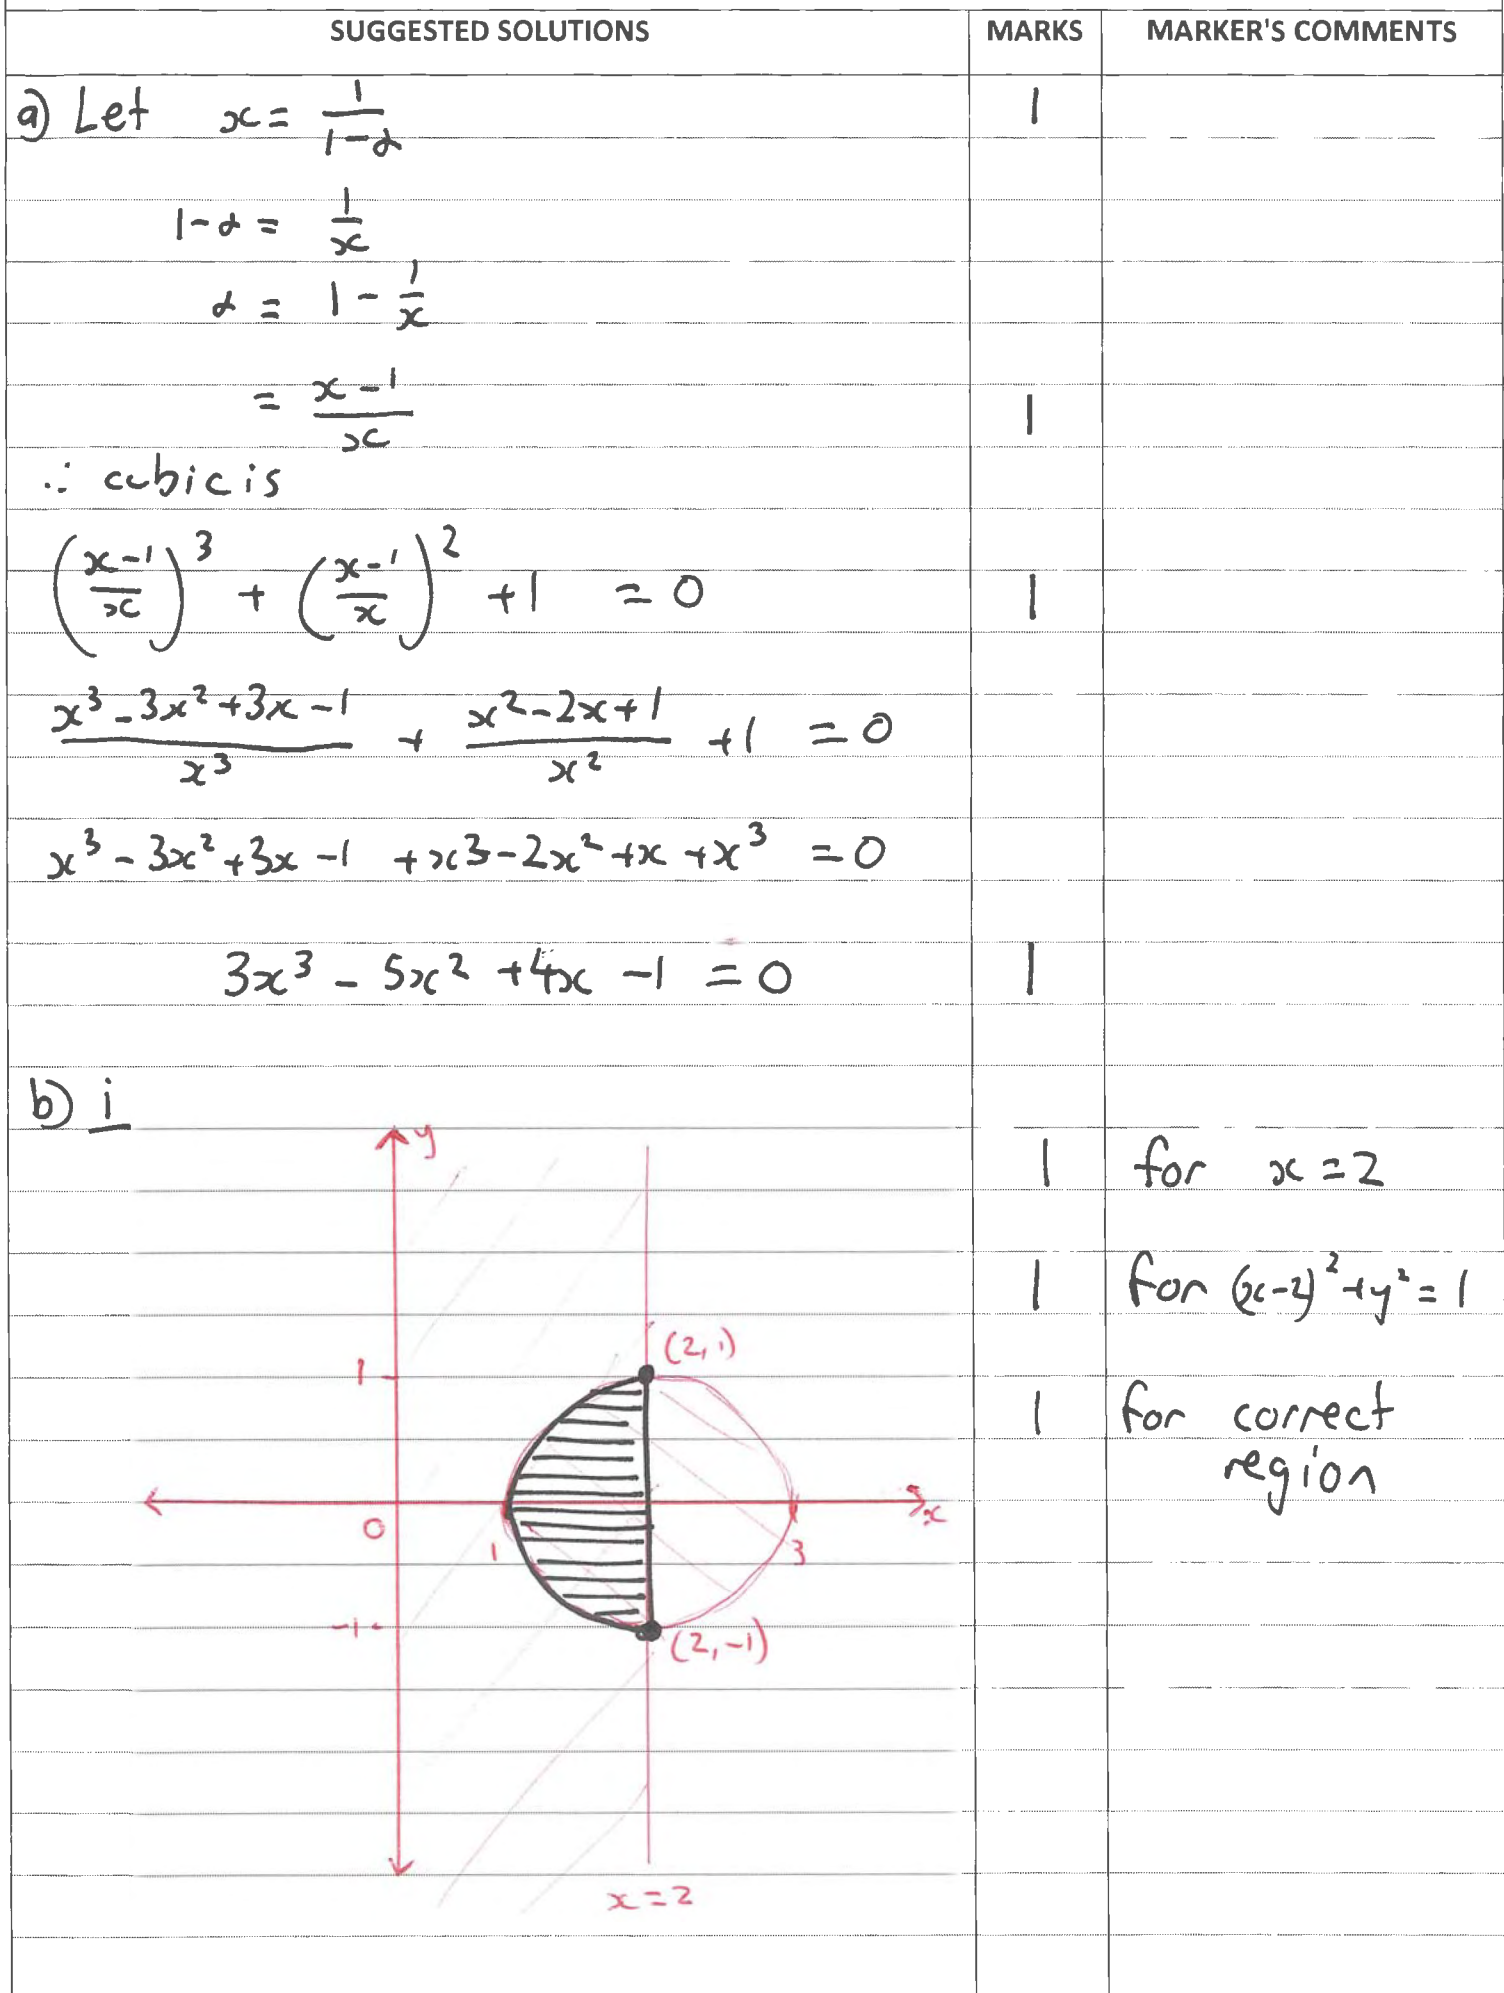 SUGGESTED SOLUTIONS MARKS MARKER'S COMMENTS
a) Let x = 1/(1-α) 1
1-α = 1/x
α = 1 - 1/x
= (x-1)/x 1
∴ cubic is
((x-1)/x)³ + ((x-1)/x)² + 1 = 0 1
(x³-3x²+3x-1)/x³ + (x²-2x+1)/x² + 1 = 0
x³-3x²+3x-1 +x³-2x²+x+x³ = 0
3x³ - 5x² + 4x - 1 = 0 1
b) i
y
1 for x = 2
1 for (x-2)²+y² = 1
(2,1)
1
1 for correct
region
0
1
3
x
-1
(2,-1)
x = 2